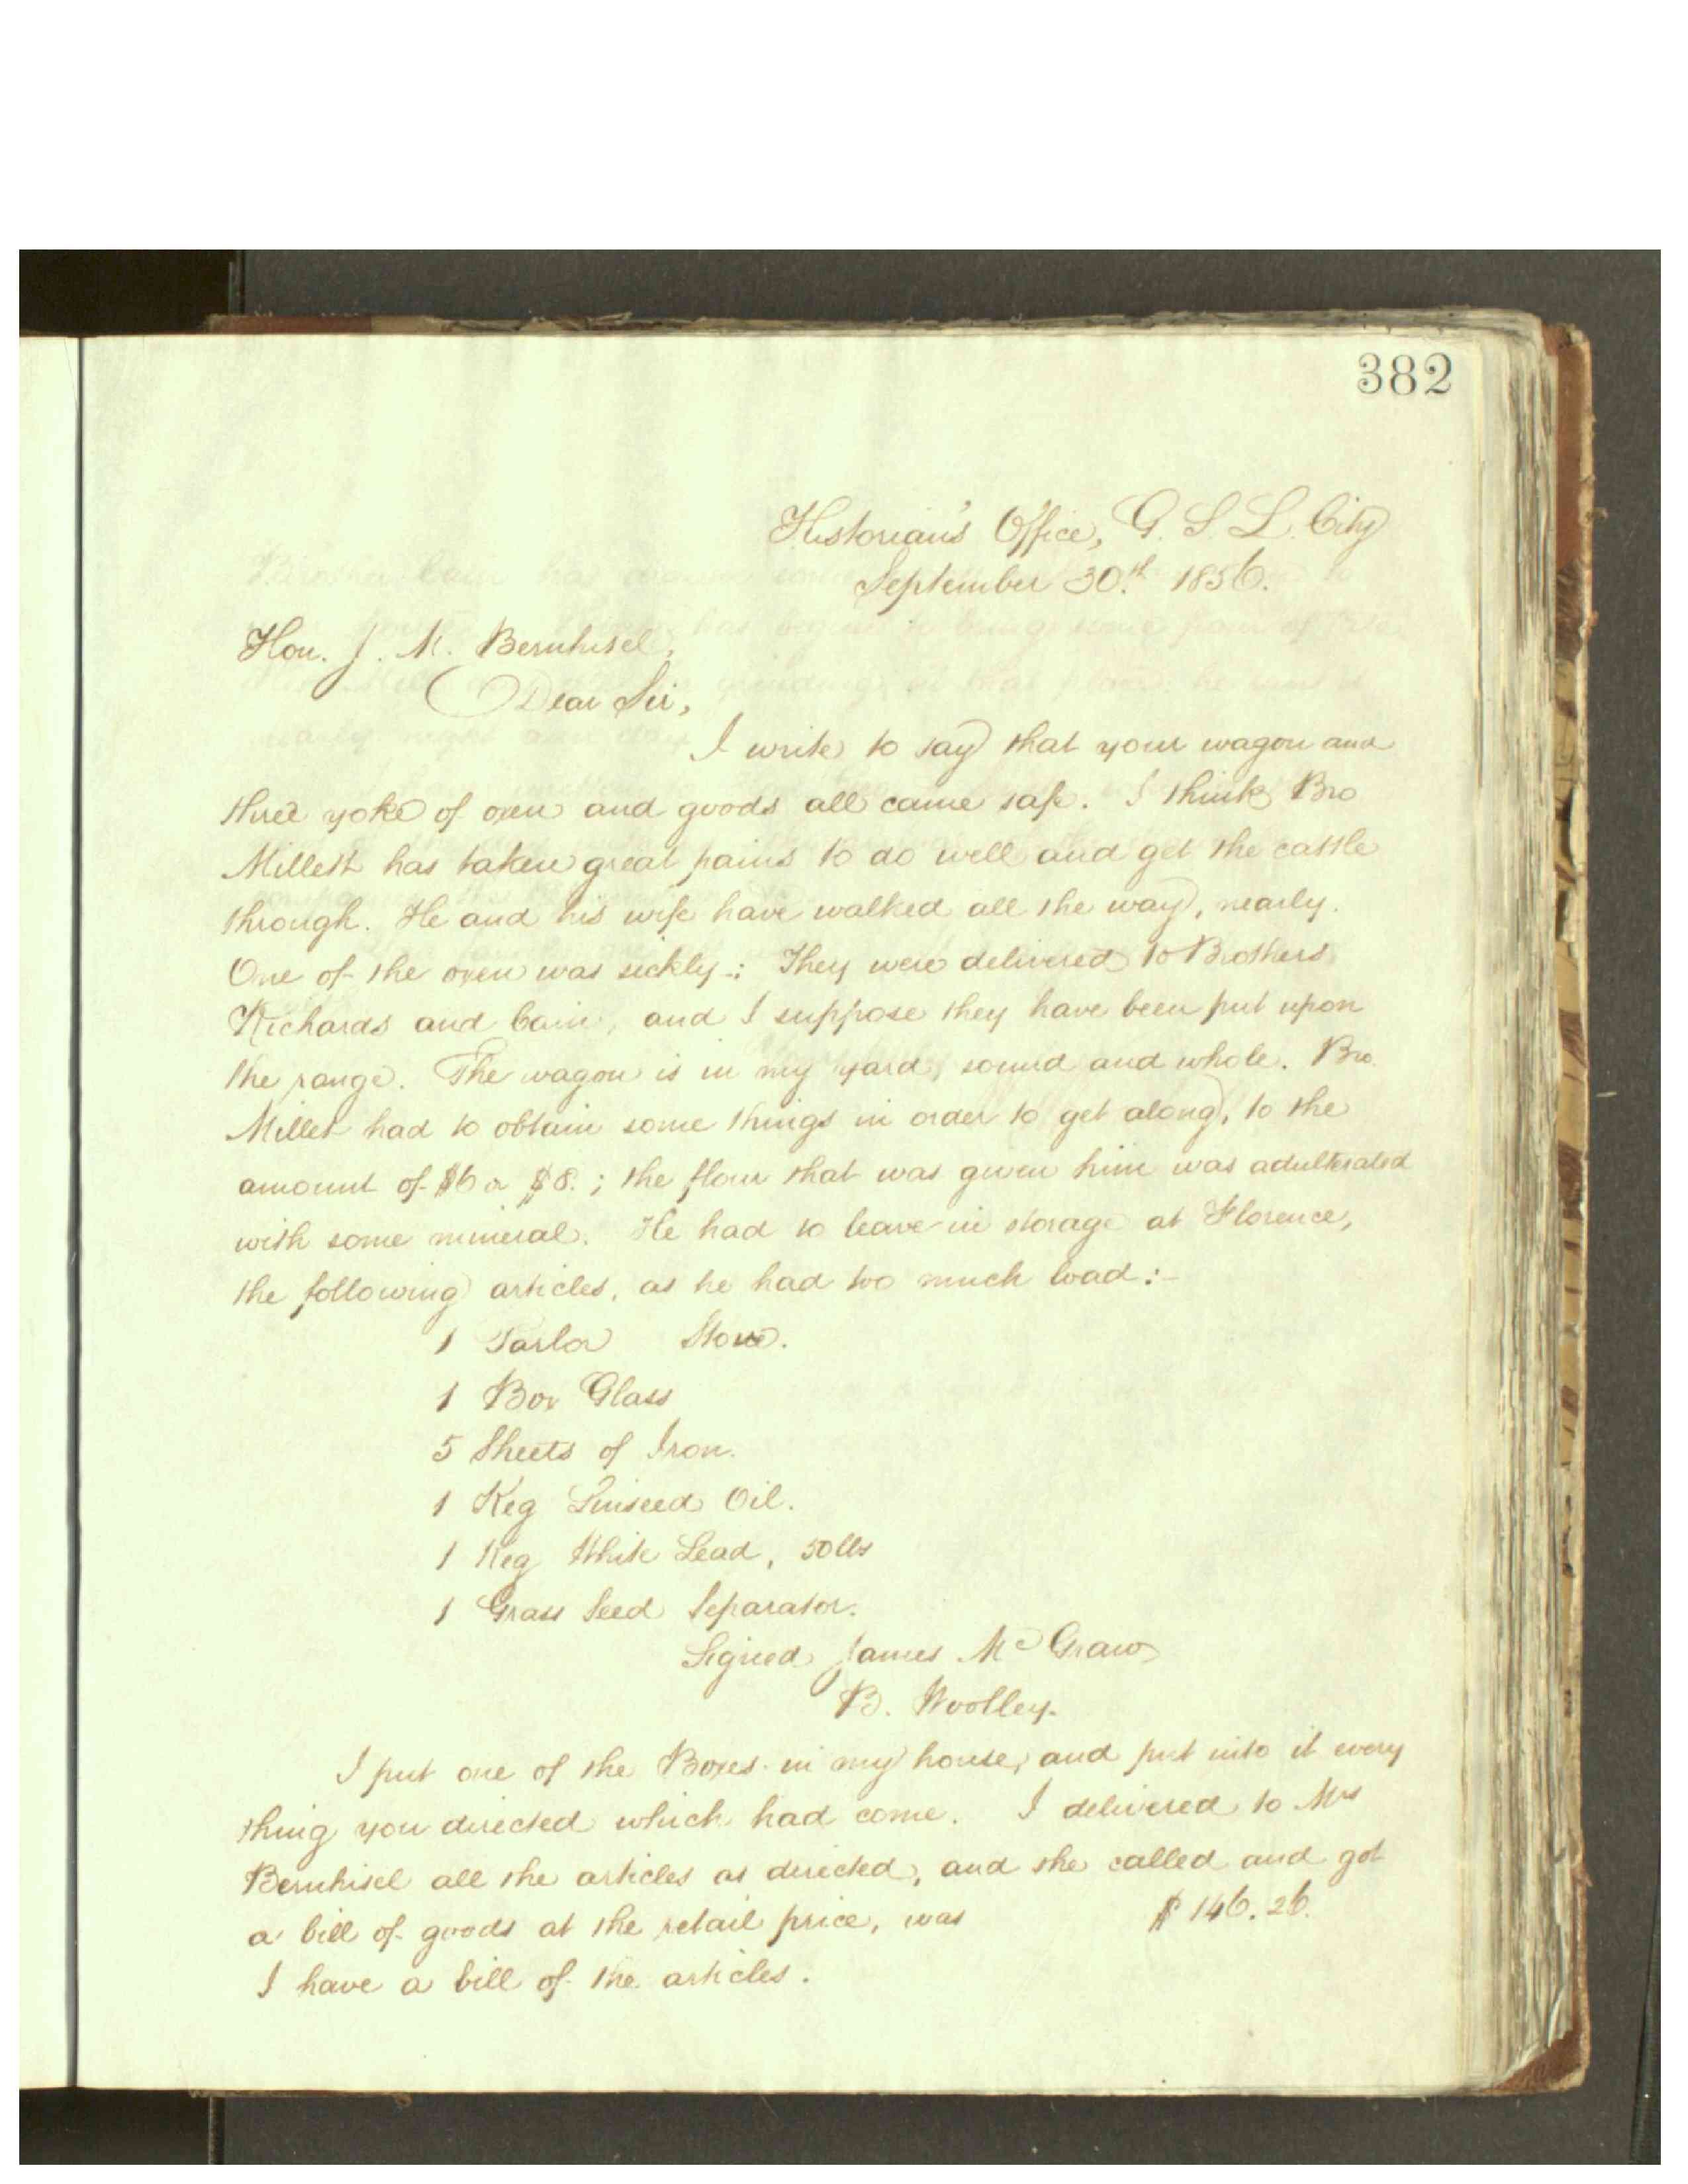 382
Historian's Office, G. S. L. City
September 30th 1856.
Hon. J. M. Bernhisel,
Dear Sir,
I write to say that your wagon and
three yoke of oxen and goods all came safe. I think Bro
Millett has taken great pains to do well and get the cattle
through. He and his wife have walked all the way, nearly.
One of the oxen was sickly; They were delivered to Brothers
Richards and Cain, and I suppose they have been put upon
the range. The wagon is in my yard, sound and whole. Bro.
Millet had to obtain some things in order to get along, to the
amount of $6 or $8.; the flour that was given him was adulterated
with some mineral. He had to leave in storage at Florence,
the following articles, as he had too much load:-
1 Parlor Stove.
1 Box Glass
5 Sheets of Iron.
1 Keg Linseed Oil.
1 Keg White Lead, 50 lbs
1 Grass Seed Separator.
Signed James McGraw
B. Woolley.
I put one of the Boxes in my house, and put into it every
thing you directed which had come. I delivered to Mrs
Bernhisel all the articles as directed, and she called and got
a bill of goods at the retail price, was $146.26.
I have a bill of the articles.